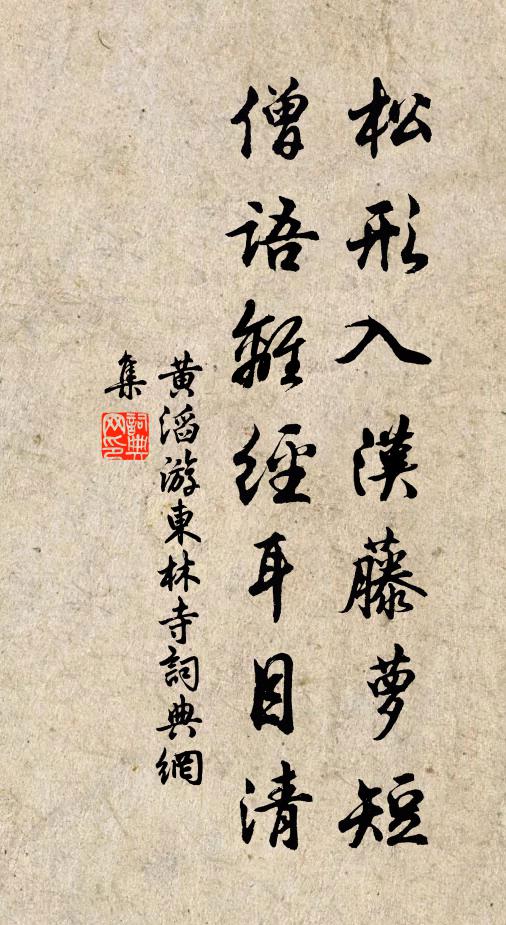 松形入漢藤蘿短
僧語離經耳目清
黃滔游東林寺詞典網
集
詞典
网印